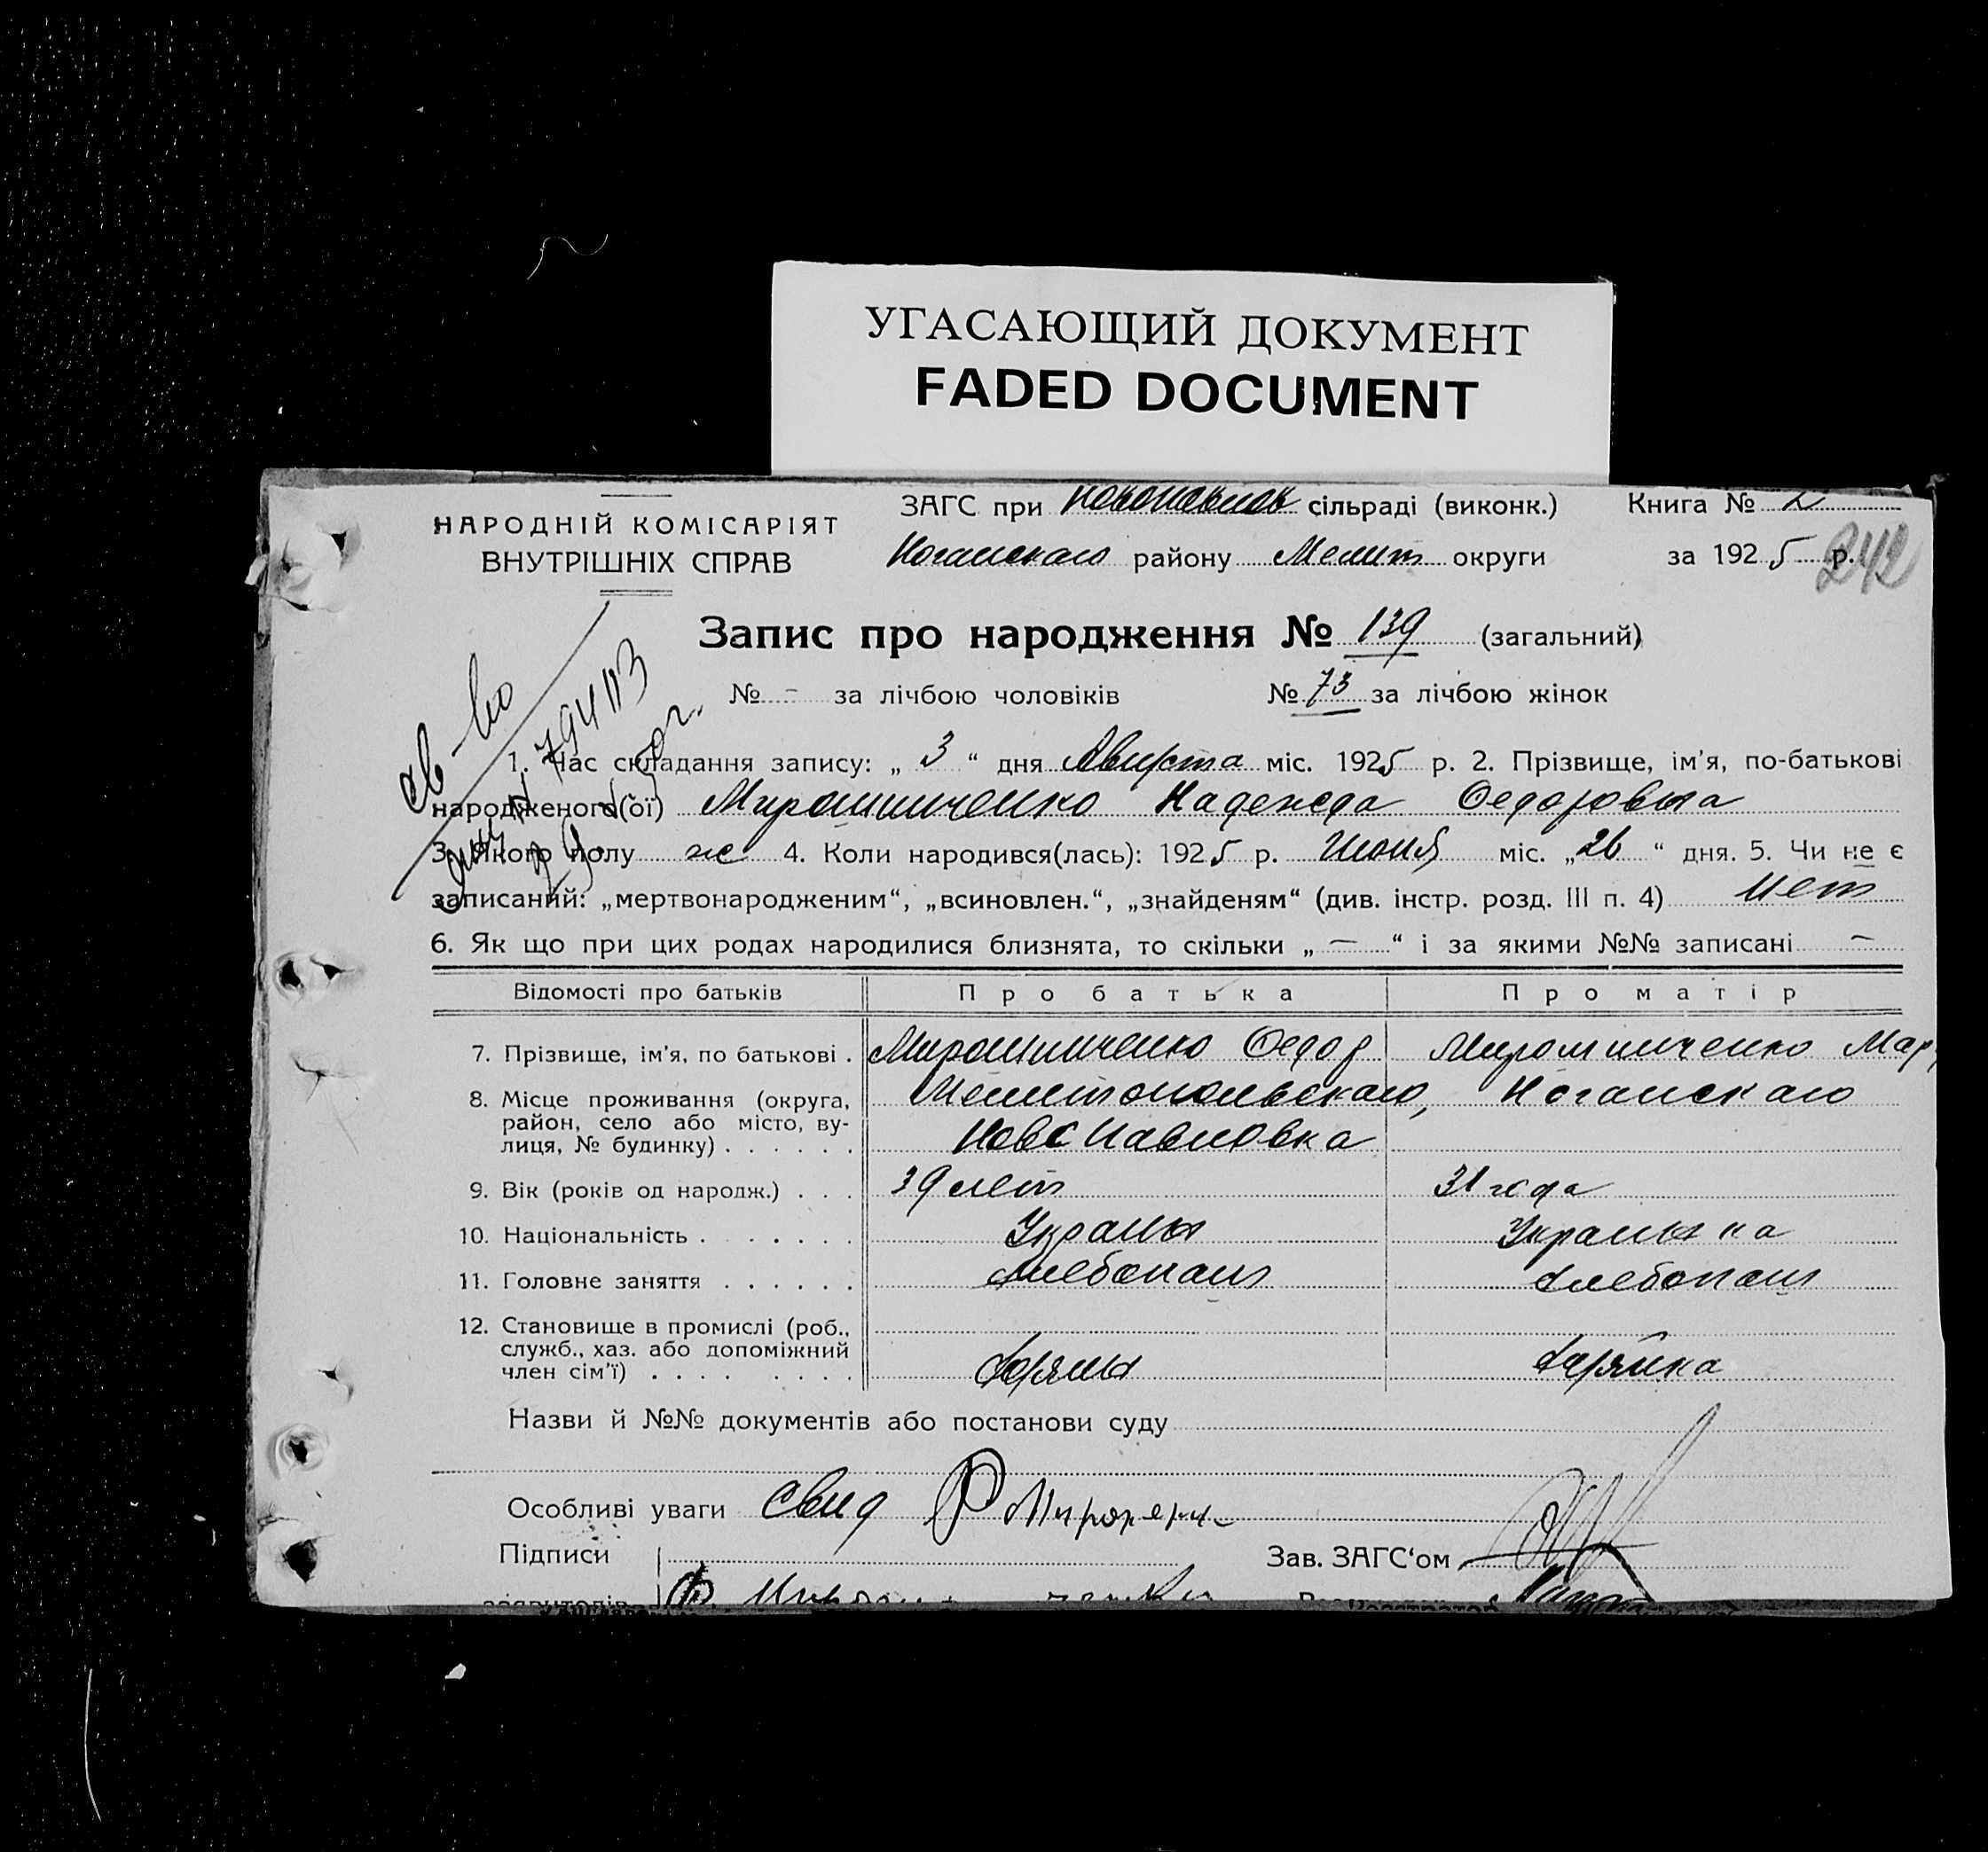 УГАСАЮЩИЙ ДОКУМЕНТ
FADED DOCUMENT
НАРОДНІЙ КОМІСАРІЯТ
ВНУТРІШНІХ СПРАВ
ЗАГС при Новопавлов сільраді (виконк.) Книга № 2
Ногайскаго району Мелит округи за 1925 р.
242
Запис про народження № 139 (загальний)
№ - за лічбою чоловіків № 73 за лічбою жінок
св-во
794113
1. Час складання запису: „ 3 “ дня Августа міс. 1925 р. 2. Прізвище, ім'я, по-батькові
народженого(ої) Мирошниченко Надежда Федоровна
3. Якого полу ж 4. Коли народився(лась): 1925 р. Июня міс. „26“ дня. 5. Чи не є
записаний: „мертвонародженим“, „всиновлен.“, „знайденям“ (див. інстр. розд. III п. 4) Нет
6. Як що при цих родах народилися близнята, то скільки „ — “ і за якими №№ записані —
Відомості про батьків Про батька Про матір
7. Прізвище, ім'я, по батькові . Мирошниченко Федор Мирошниченко Мар
8. Місце проживання (округа, Мелитопольскаго, Ногайскаго
район, село або місто, ву-
лиця, № будинку) . . . . . . Ново Павловка
9. Вік (років од народж.) . . . 39 лет 31 года
10. Національність . . . . . . . Украин Украинка
11. Головне заняття . . . . . . Хлебопаш Хлебопаш
12. Становище в промислі (роб.,
служб., хаз. або допоміжний
член сім'ї) . . . . . . . . Хозяин Хозяйка
Назви й №№ документів або постанови суду
Особливі уваги Свид
Підписи Зав. ЗАГС‘ом
заявителів Ф